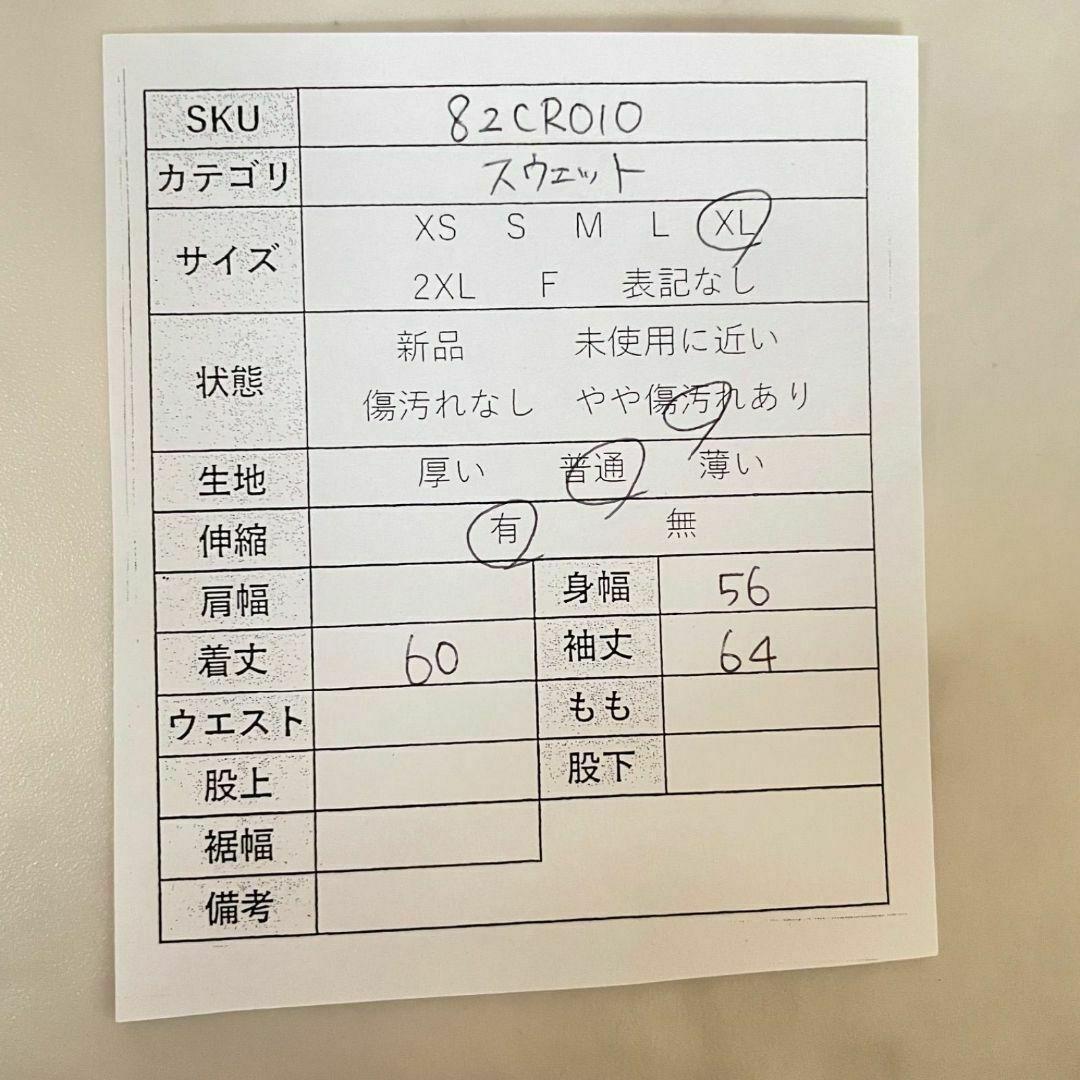 SKU 82CR010
カテゴリ スウェット
サイズ XS S M L XL
2XL F 表記なし
状態 新品 未使用に近い
傷汚れなし やや傷汚れあり
生地 厚い 普通 薄い
伸縮 有 無
肩幅 身幅 56
着丈 60 袖丈 64
ウエスト もも
股上 股下
裾幅
備考